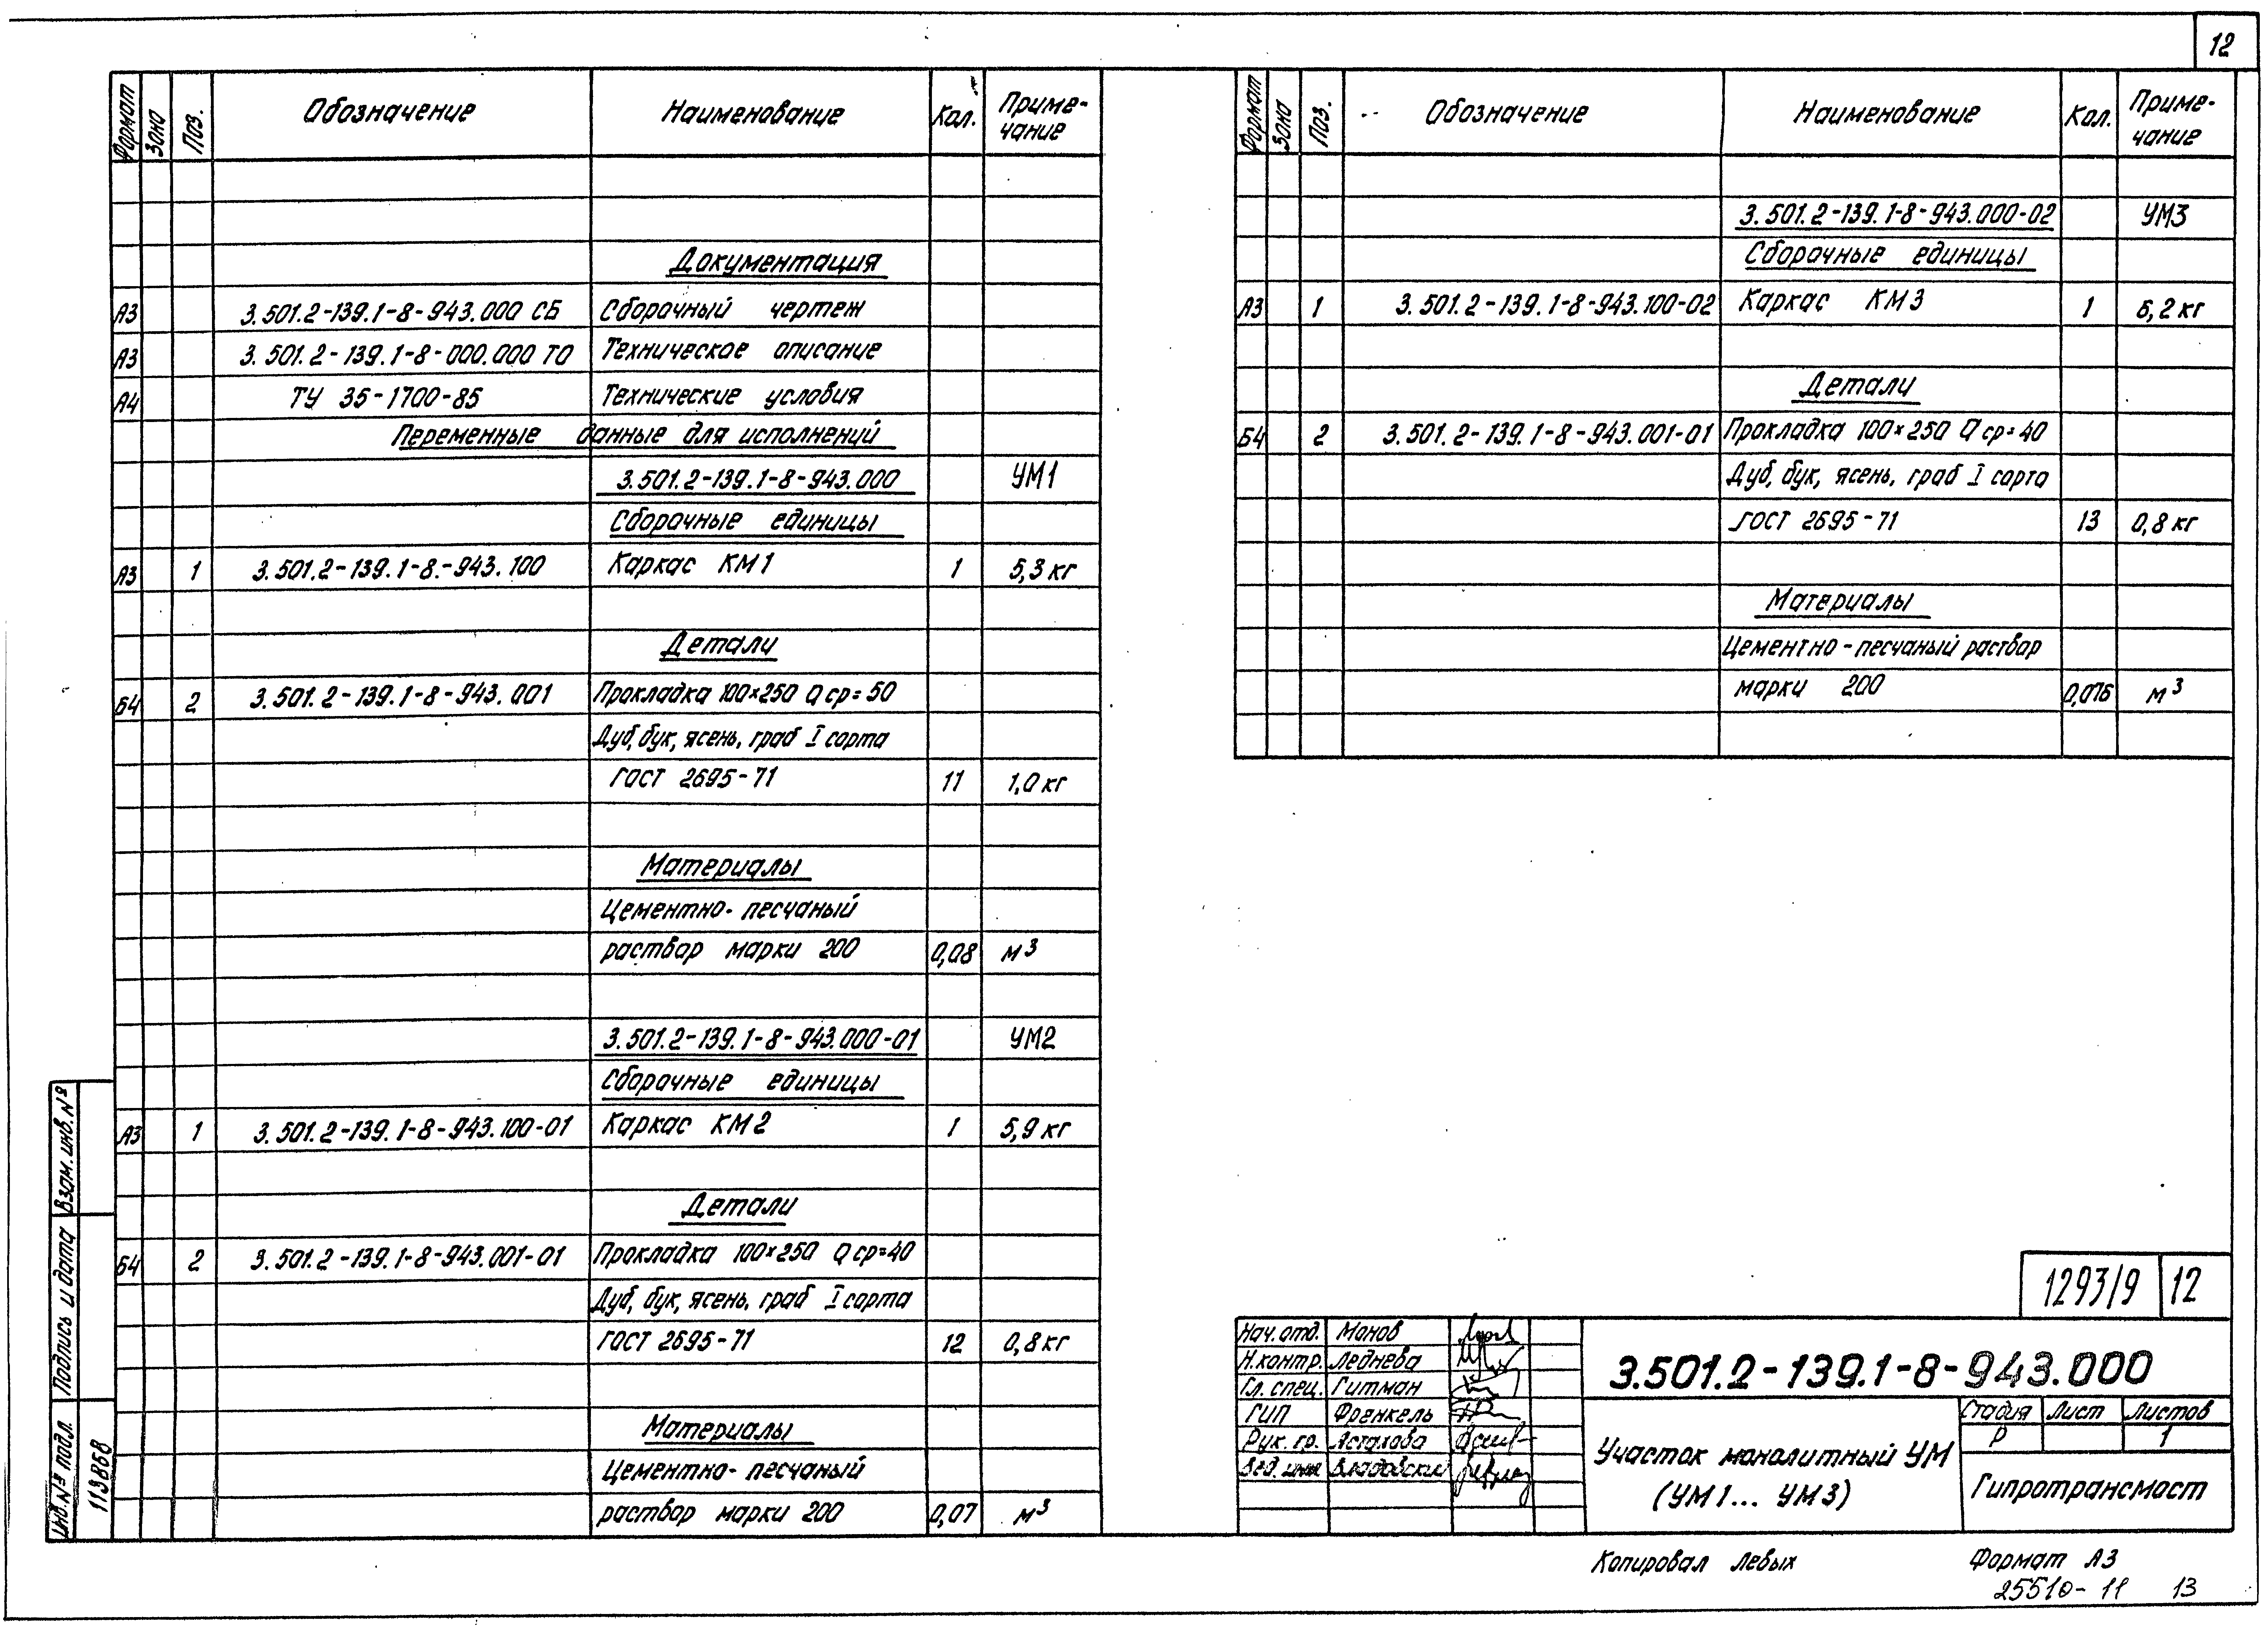 12
Формат Зона Поз. Обозначение Наименование Кол. Приме-
чание
Документация
А3 3.501.2-139.1-8-943.000 СБ Сборочный чертеж
А3 3.501.2-139.1-8-000.000 ТО Техническое описание
А4 ТУ 35-1700-85 Технические условия
Переменные данные для исполнений
3.501.2-139.1-8-943.000 УМ1
Сборочные единицы
А3 1 3.501.2-139.1-8-943.100 Каркас КМ1 1 5,3 кг
Детали
Б4 2 3.501.2-139.1-8-943.001 Прокладка 100×250 δср=50
Дуб, бук, ясень, граб I сорта
ГОСТ 2695-71 11 1,0 кг
Материалы
Цементно-песчаный
раствор марки 200 0,08 м³
3.501.2-139.1-8-943.000-01 УМ2
Сборочные единицы
А3 1 3.501.2-139.1-8-943.100-01 Каркас КМ2 1 5,9 кг
Детали
Б4 2 3.501.2-139.1-8-943.001-01 Прокладка 100×250 δср=40
Дуб, бук, ясень, граб I сорта
ГОСТ 2695-71 12 0,8 кг
Материалы
Цементно-песчаный
раствор марки 200 0,07 м³
Формат Зона Поз. Обозначение Наименование Кол. Приме-
чание
3.501.2-139.1-8-943.000-02 УМ3
Сборочные единицы
А3 1 3.501.2-139.1-8-943.100-02 Каркас КМ3 1 6,2 кг
Детали
Б4 2 3.501.2-139.1-8-943.001-01 Прокладка 100×250 δср=40
Дуб, бук, ясень, граб I сорта
ГОСТ 2695-71 13 0,8 кг
Материалы
Цементно-песчаный раствор
марки 200 0,076 м³
Взам. инв. №
Подпись и дата
Инв. № подл.
113868
1293/9 12
Нач. отд. Монов
Н. контр. Леднева
Гл. спец. Гитман
ГИП Френкель
Рук. гр. Астахова
Вед. инж
3.501.2-139.1-8-943.000
Участок монолитный УМ
(УМ1... УМ3)
Стадия Лист Листов
Р 1
Гипротрансмост
Копировал Левых Формат А3
25510-11 13